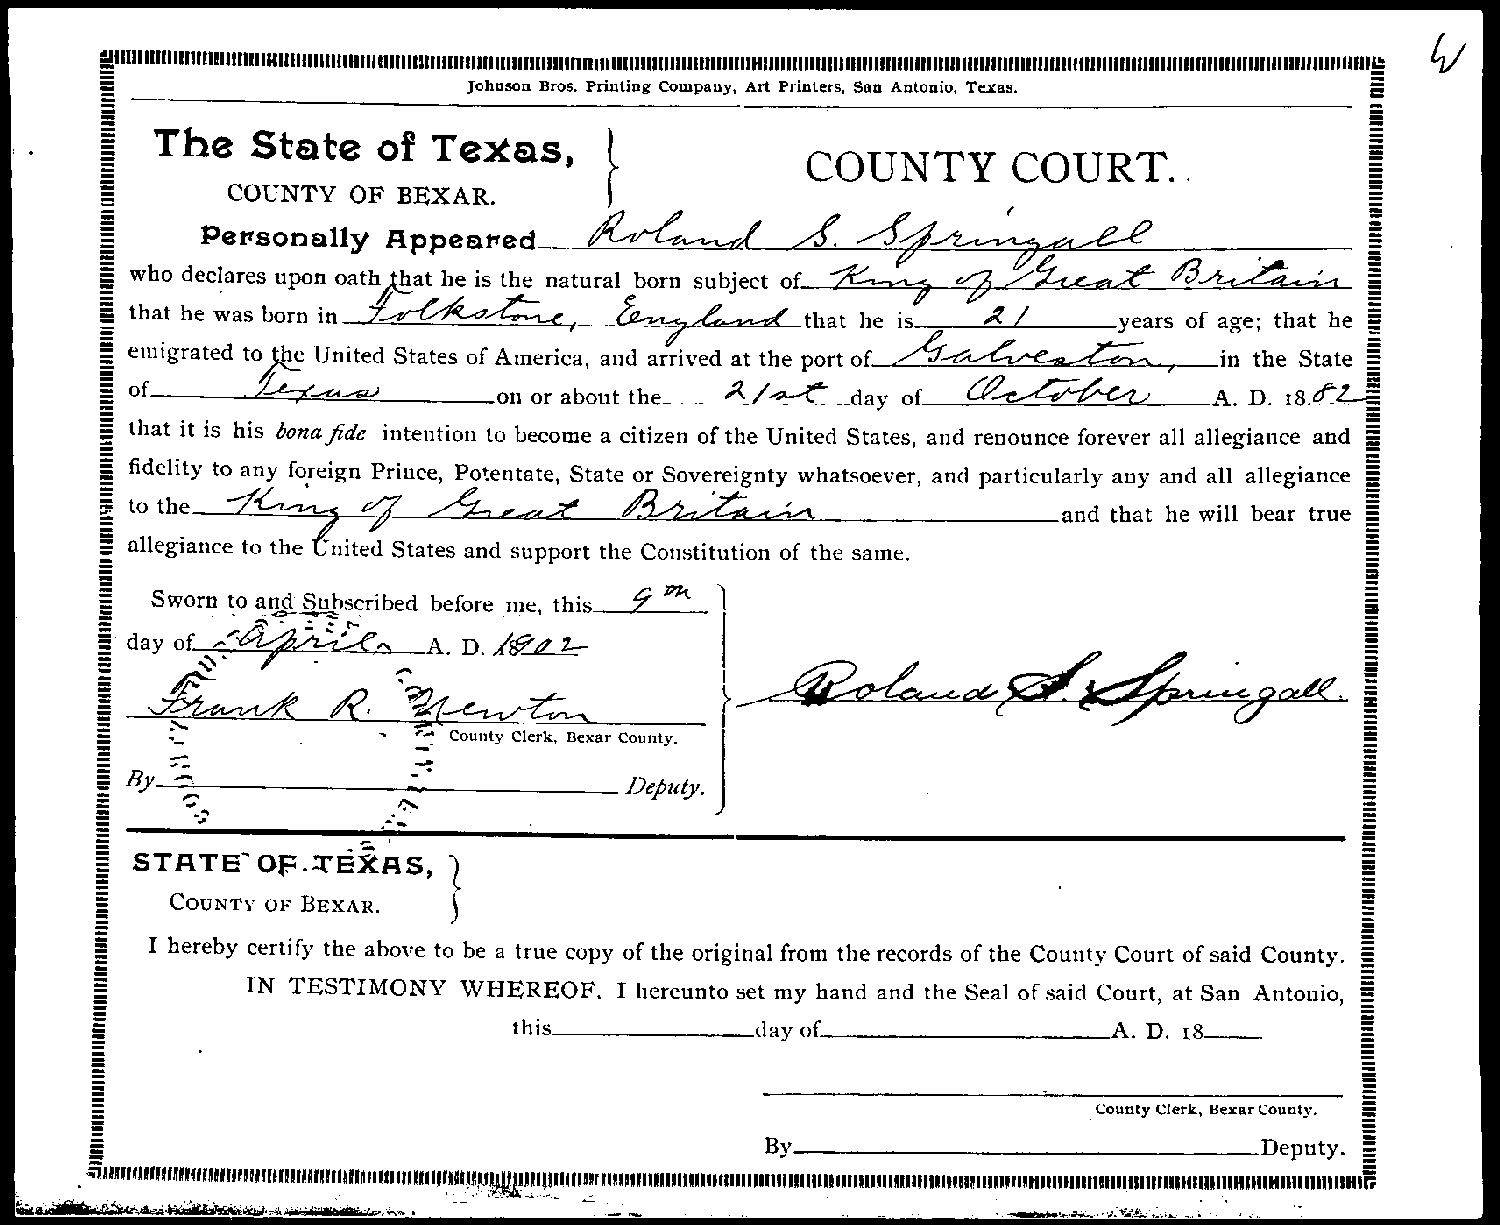 W
Johnson Bros. Printing Company, Art Printers, San Antonio, Texas.
The State of Texas,
COUNTY OF BEXAR.
COUNTY COURT.
Personally Appeared Roland S. Springall
who declares upon oath that he is the natural born subject of King of Great Britain
that he was born in Folkstone, England that he is 21 years of age; that he
emigrated to the United States of America, and arrived at the port of Galveston, in the State
of Texas on or about the 21st day of October A. D. 1882
that it is his bona fide intention to become a citizen of the United States, and renounce forever all allegiance and
fidelity to any foreign Prince, Potentate, State or Sovereignty whatsoever, and particularly any and all allegiance
to the King of Great Britain and that he will bear true
allegiance to the United States and support the Constitution of the same.
Sworn to and Subscribed before me, this 9th
day of April A. D. 1902
Frank R. Newton
County Clerk, Bexar County.
By Deputy.
Roland S. Springall.
STATE OF TEXAS,
COUNTY OF BEXAR.
I hereby certify the above to be a true copy of the original from the records of the County Court of said County.
IN TESTIMONY WHEREOF, I hereunto set my hand and the Seal of said Court, at San Antonio,
this day of A. D. 18
County Clerk, Bexar County.
By Deputy.